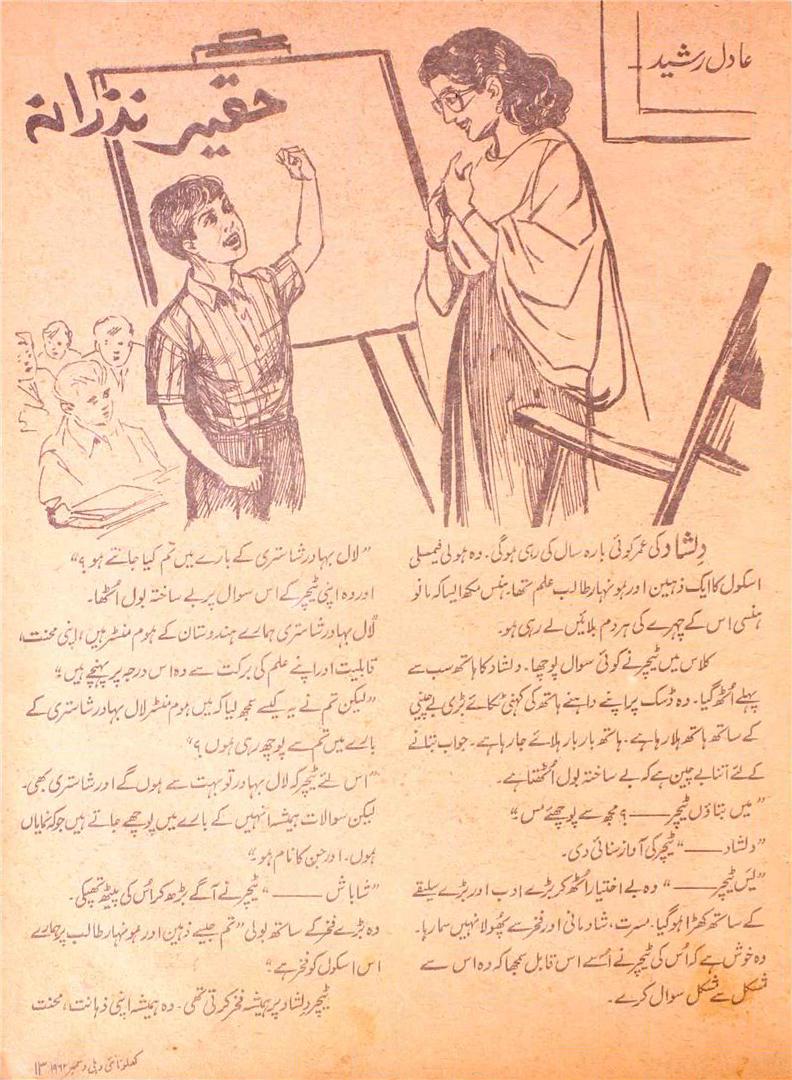 عادل رشید
حقیر نذرانہ
دِلشاد کی عمر کوئی بارہ سال کی رہی ہوگی۔ وہ ہولی فیملی
اسکول کا ایک ذہین اور ہونہار طالب علم تھا۔ ہنس مکھ ایسا کہ مانو
ہنسی اس کے چہرے کی ہر دم بلائیں لے رہی ہو۔
کلاس میں ٹیچر نے کوئی سوال پوچھا۔ دلشاد کا ہاتھ سب سے
پہلے اُٹھ گیا۔ وہ ڈسک پر اپنے داہنے ہاتھ کی کہنی ٹکائے بڑی بے چینی
کے ساتھ ہاتھ ہلا رہا ہے۔ ہاتھ بار بار ہلائے جا رہا ہے۔ جواب بتانے
کے لئے اتنا بے چین ہے کہ بے ساختہ بول اُٹھتا ہے۔
”میں بتاؤں ٹیچر ــــــ ؟ مجھ سے پوچھئے مس“
”دلشاد ــــــ“ ٹیچر کی آواز سنائی دی۔
”یس ٹیچر ــــــ“ وہ بے اختیار اُٹھ کر بڑے ادب اور بڑے سلیقے
کے ساتھ کھڑا ہوگیا۔ مسرت، شادمانی اور فخر سے پھُولا نہیں سما رہا۔
وہ خوش ہے کہ اُس کی ٹیچر نے اُسے اس قابل سمجھا کہ وہ اس سے
مُشکل سے مُشکل سوال کرے۔
”لال بہادر شاستری کے بارے میں تم کیا جانتے ہو؟“
اور وہ اپنی ٹیچر کے اس سوال پر بے ساختہ بول اُٹھا۔
”لال بہادر شاستری ہمارے ہندوستان کے ہوم منسٹر ہیں، اپنی محنت،
قابلیت اور اپنے علم کی برکت سے وہ اس درجہ پر پہنچے ہیں“
”لیکن تم نے یہ کیسے سمجھ لیا کہ میں ہوم منسٹر لال بہادر شاستری کے
بارے میں تم سے پوچھ رہی ہوں؟“
”اس لئے ٹیچر کہ لال بہادر تو بہت سے ہوں گے اور شاستری بھی۔
لیکن سوالات ہمیشہ انہیں کے بارے میں پوچھے جاتے ہیں جو کہ نمایاں
ہوں۔ اور جن کا نام ہو“
”شاباش ــــــ“ ٹیچر نے آگے بڑھ کر اُس کی پیٹھ تھپکی۔
وہ بڑے فخر کے ساتھ بولی ”تم جیسے ذہین اور ہونہار طالب پر ہمارے
اس اسکول کو فخر ہے“
ٹیچر دلشاد پر ہمیشہ فخر کرتی تھی۔ وہ ہمیشہ اپنی ذہانت، محنت
کھلونا نئی دہلی دسمبر ۱۹۶۲ ۱۳